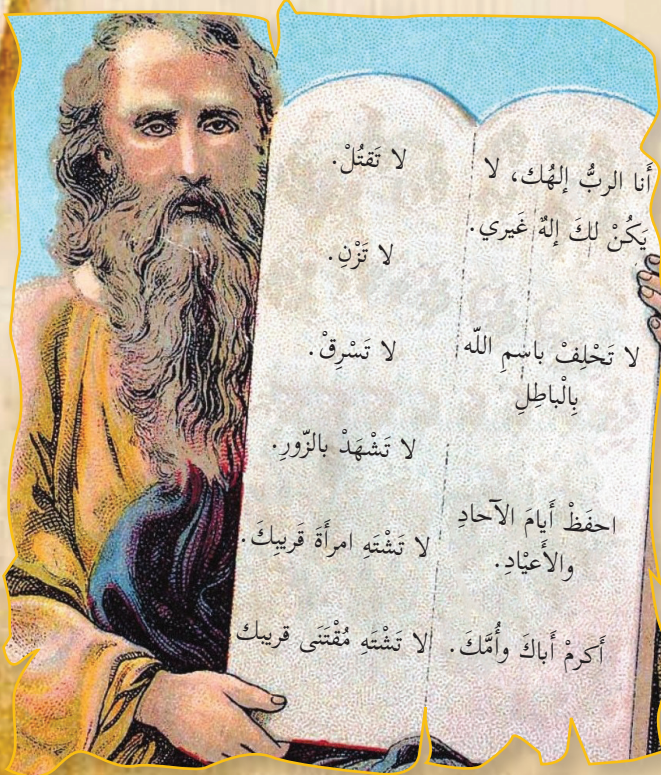 أَنا الربُّ إلهُك، لا
يَكُنْ لكَ إلهٌ غَيري.
لا تَحْلِفْ باسمِ اللّه
بِالْباطِلِ
احفَظْ أَيامَ الآحادِ
والأَعيْادِ.
أَكرمْ أَباكَ وأُمَّكَ.
لا تَقتُلْ.
لا تَزْنِ.
لا تَسْرِقْ.
لا تَشْهَدْ بالزّورِ.
لا تَشْتَهِ امرأَةَ قَريبِكَ.
لا تَشْتَهِ مُقْتَنَى قريبك